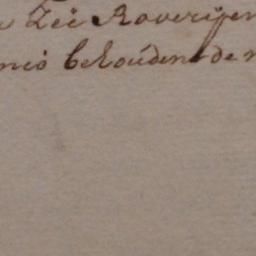 Zee Rooverijen
behoudens de